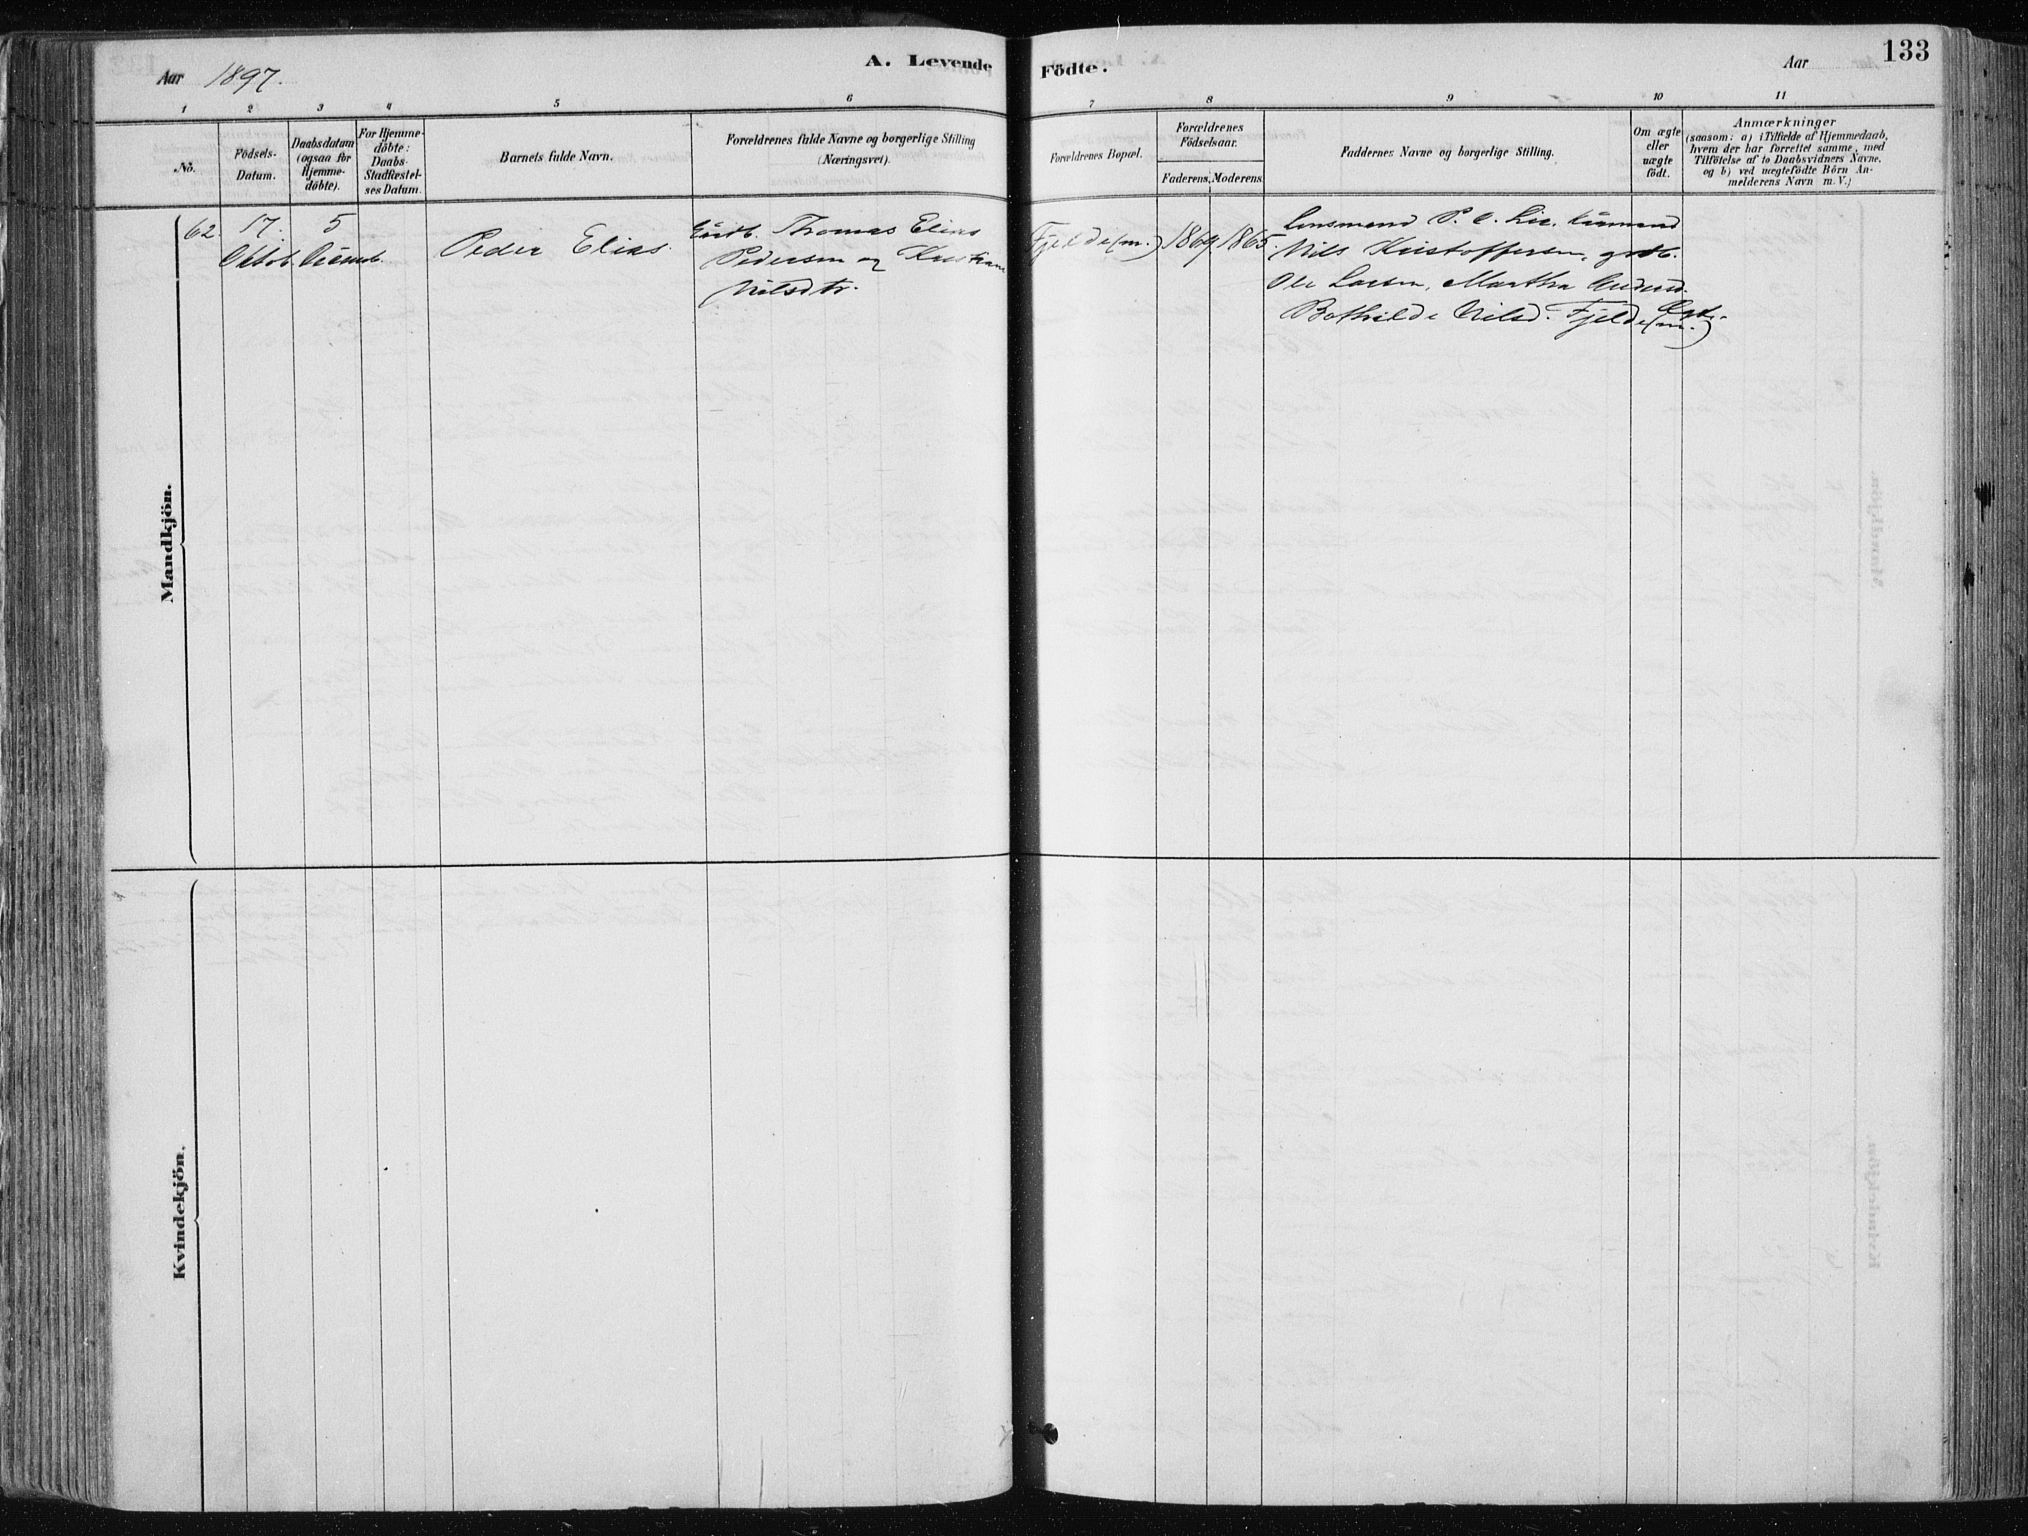 Aar 1897.
A. Levende
Födte.
Aar
133
1 2 3 4 5 6 7 8 9 10 11
No.
Födsels-
Datum.
Daabsdatum
(ogsaa for
Hjemme-
döbte).
For Hjemme-
döbte:
Daabs-
Stadfæstel-
ses Datum.
Barnets fulde Navn.
Forældrenes fulde Navne og borgerlige Stilling
(Næringsvei).
Forældrenes Bopæl.
Forældrenes
Födselsaar.
Faderens.
Moderens.
Faddernes Navne og borgerlige Stilling.
Om ægte
eller
uægte
födt.
Anmærkninger
(saasom: a) i Tilfælde af Hjemmedaab,
hvem der har forrettet samme, med
Tilföielse af to Daabsvidners Navne,
og b) ved uægtefödte Börn An-
melderens Navn m. V.)
Mandkjön.
62.
17.
Oktob.
5
Peder Elias.
Thomas Elias
Pedersen og
Nilsdtr.
Fjelde (m.)
1869.
1865.
Lensmand P. O. Lie,
Nils Kristoffersen, grdb.
Ole Larsen, Martha
Bothilde Nilsd. Fjelde (m.)
Kvindekjön.